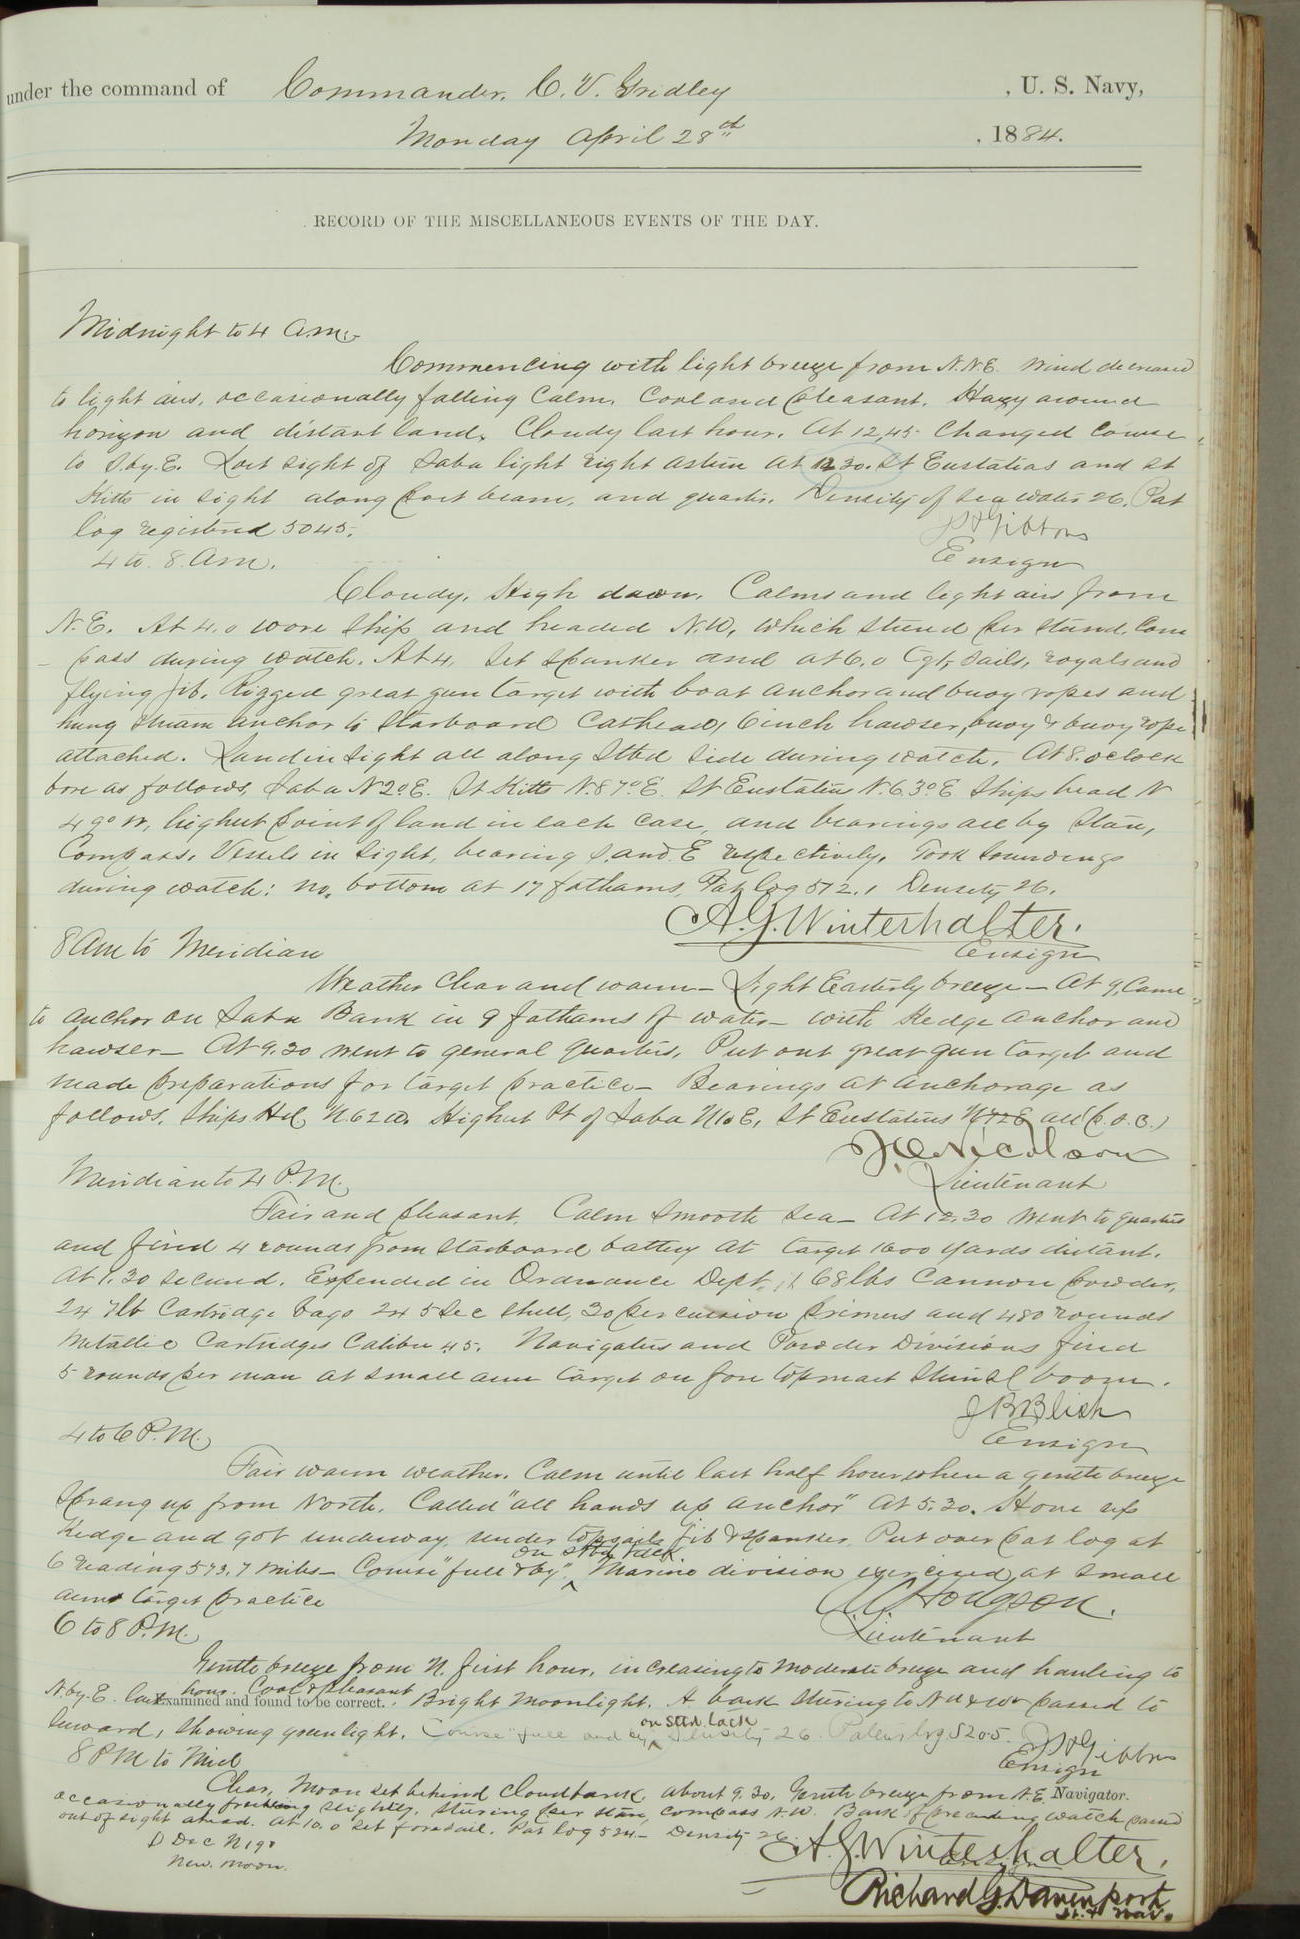 under the command of Commander, C. V. Gridley , U. S. Navy,
Monday April 28th , 1884.
RECORD OF THE MISCELLANEOUS EVENTS OF THE DAY.
Midnight to 4 a.m.
Commencing with light breeze from N.N.E. Wind decreased
to light airs, occasionally falling Calm. Cool and pleasant. Hazy around
horizon and distant land. Cloudy last hour. At 12,45 Changed Course
to S.by.E. Lost sight of Saba light right astern at 12 30. St Eustatias and St
Kitts in sight along port beam, and quarter. Density of sea water 26. Pat
log registered 504.5.
Gibbons
Ensign
4 to 8 Am.
Cloudy. High dawn. Calms and light airs from
N.E. At 4.0 wore Ship and headed N.W. which steered per stand. Com
pass during watch. At 4, Set Spanker and at 6.0 Tgt, Sails, royals and
flying jib. Rigged great gun target with boat anchor and buoy ropes and
hung stream anchor to Starboard Cathead, 6 inch hawser, buoy & buoy rope
attached. Land in Sight all along Stbd Side during watch. At 8. oclock
bore as follows, Saba N 2° E. St Kitts N. 87° E. St Eustatius N. 63° E Ships head N
49° W, highest point of land in each Case, and bearings all by Stan,
Compass. Vessels in Sight, bearing S. and E respectively. Took Soundings
during watch: no. bottom at 17 fathoms, Pat log 512.1 Density 26.
A. G. Winterhalter.
Ensign
8 Am to Meridian
Weather Clear and warm – Light Easterly breeze – At 9, Came
to anchor on Saba Bank in 9 fathoms of water – with Kedge anchor and
hawser – At 9.30 went to general quarters, Put out great gun target and
made preparations for target practice – Bearings at anchorage as
follows. Ships Hd N. 62 W. Highest Pt of Saba N 10 E, St Eustatius N 72 E all (p.s.c.)
Nicolson
Lieutenant
Meridian to 4 P.M.
Fair and pleasant. Calm Smooth Sea – At 12.30 went to quarters
and fired 4 rounds from Starboard battery at target 1600 yards distant.
At 1.30 Secured. Expended in Ordnance Dept. 168 lbs Cannon powder,
24 7lb Cartridge bags 24 5 Sec Shell, 30 percussion primers and 480 rounds
Metallic Cartridges Calibre 45. Navigators and Powder Divisions fired
5 rounds per man at small arm target on fore topmast Stunsl boom.
J B Blish
Ensign
4 to 6 P.M.
Fair warm weather. Calm until last half hour, when a gentle breeze
Sprang up from North. Called "all hands up anchor" at 5.30. Hove up
Kedge and got underway under topsails jib & Spanker. Put over pat log at
6 reading 513.7 miles – Course "full & by". on Stbd tack Marine division exercised at Small
arms target practice
Hodgson.
Lieutenant
6 to 8 P.M.
Gentle breeze from N. first hour, increasing to moderate breeze and hauling to
N. by. E. last hour. Cool & pleasant. Bright moonlight. A bark steering to N'd & W'd passed to
Examined and found to be correct.
leeward, showing green light. Course "full and by" on Stbd tack Density 26. Patent log 520.5.
Gibbons
Ensign
8 PM to Mid
Clear, Moon set behind Cloudbank, about 9.30. Gentle breeze from N.E.
Navigator.
occasionally freshening slightly. Steering per stan, compass N.W. Bark of preceding watch passed
out of sight ahead. At 10.0 Set foresail. Pat log 534.– Density 26.
D Dec N 19°
New. moon.
A. G. Winterhalter.
Ensign
Richard G. Davenport
Lt. & Nav.